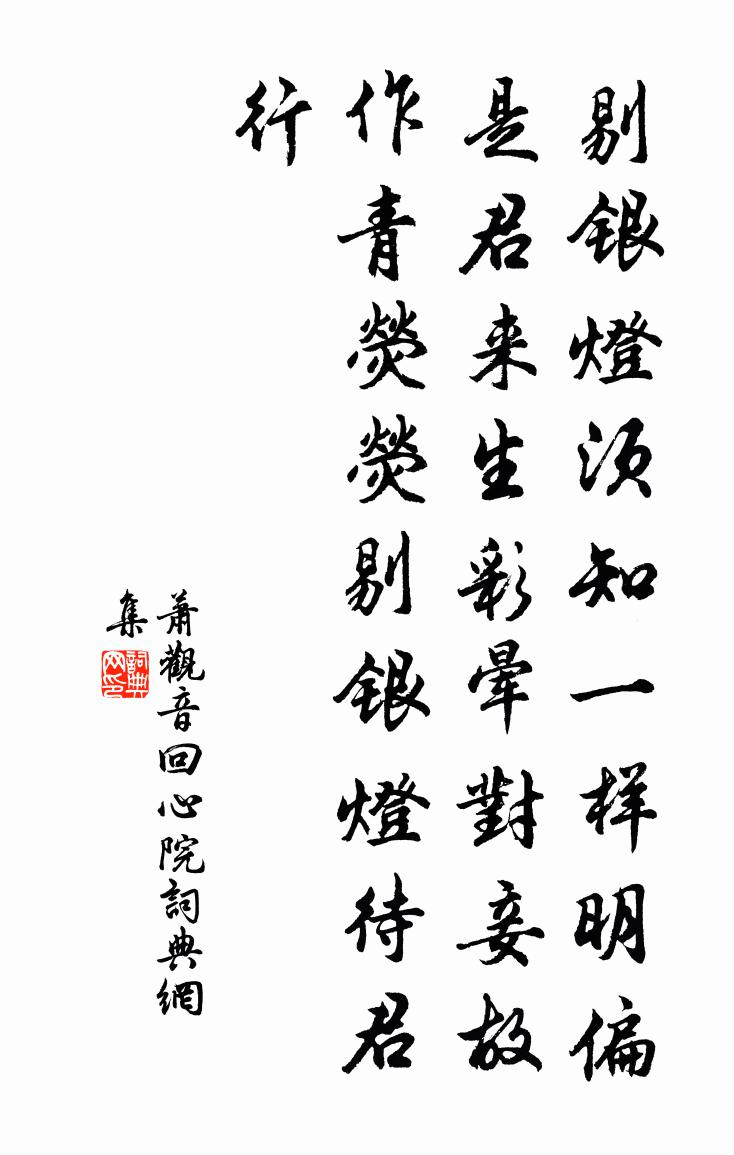 剔銀燈須知一样明偏
是君来生彩暈對妾故
作青熒熒剔銀燈待君
行
蕭觀音回心院詞典網
集
詞典
网印